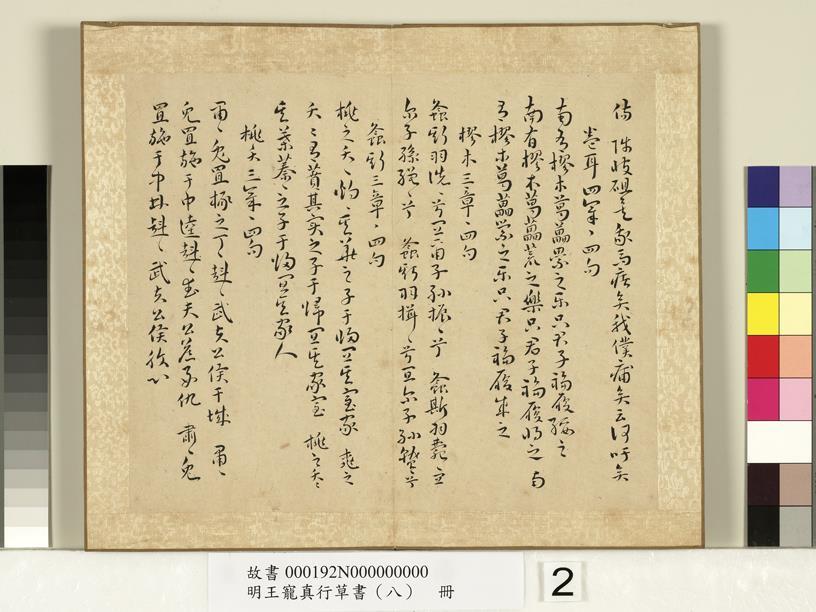 傷 陟彼砠矣我馬瘏矣我僕痡矣云何吁矣
卷耳四章〻四句
南有樛木葛藟纍之樂只君子福履綏之
南有樛木葛藟荒之樂只君子福履將之 南
有樛木葛藟縈之樂只君子福履成之
樛木三章〻四句
螽斯羽詵〻兮宜爾子孫振〻兮 螽斯羽薨〻宜
爾子孫繩〻兮 螽斯羽揖〻兮宜爾子孫蟄兮
螽斯三章〻四句
桃之夭〻灼〻其華之子于歸宜其室家 桃之
夭〻有蕡其實之子于歸宜其家室 桃之夭〻
其葉蓁〻之子于歸宜其家人
桃夭三章〻四句
肅〻兔罝椓之丁〻赳〻武夫公侯干城 肅〻
兔罝施于中逵赳〻武夫公侯好仇 肅〻兔
罝施于中林赳〻武夫公侯腹心
故書 000192N000000000
明王寵真行草書（八） 冊
2